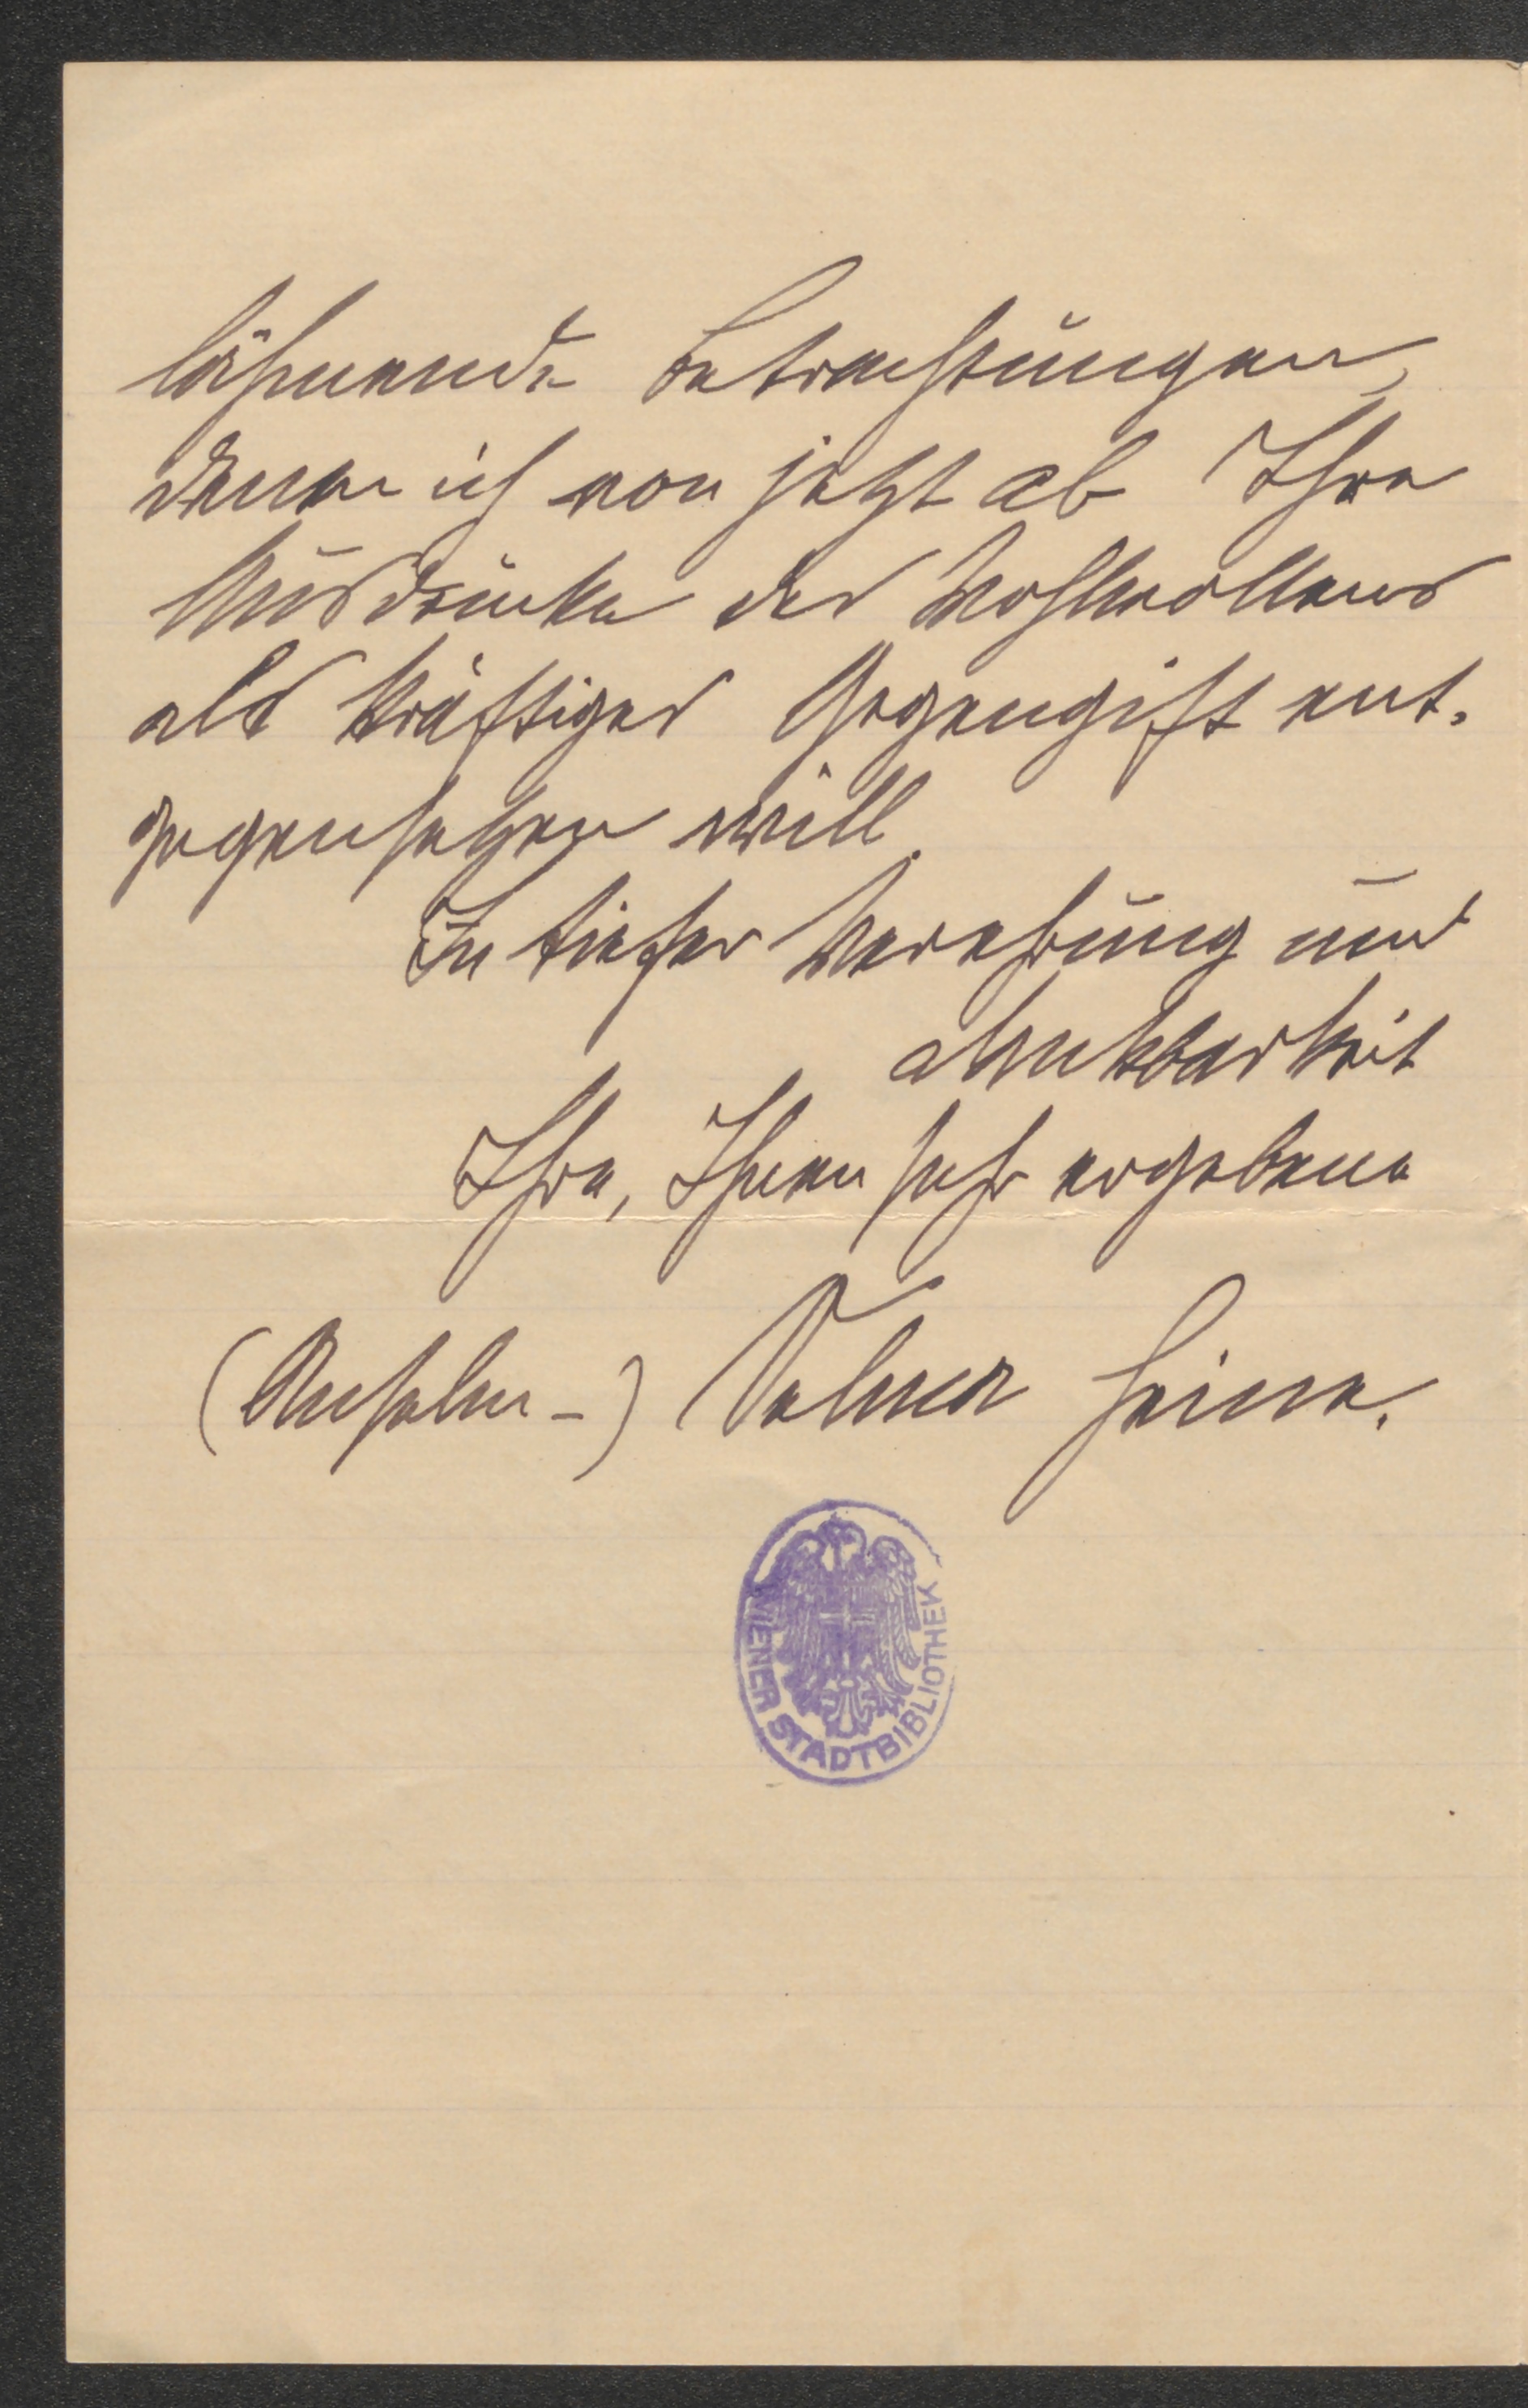 lähmende Betrachtungen,
denen ich von jetzt ab Ihre
Ausdrücke des Wohlwollens
als kräftiges Gegengift ent-
gegensetzen will.
In tiefer Verehrung und
Dankbarkeit
Ihre, Ihnen sehr ergebene
(Anselm-) Selma Heine.
WIENER STADTBIBLIOTHEK